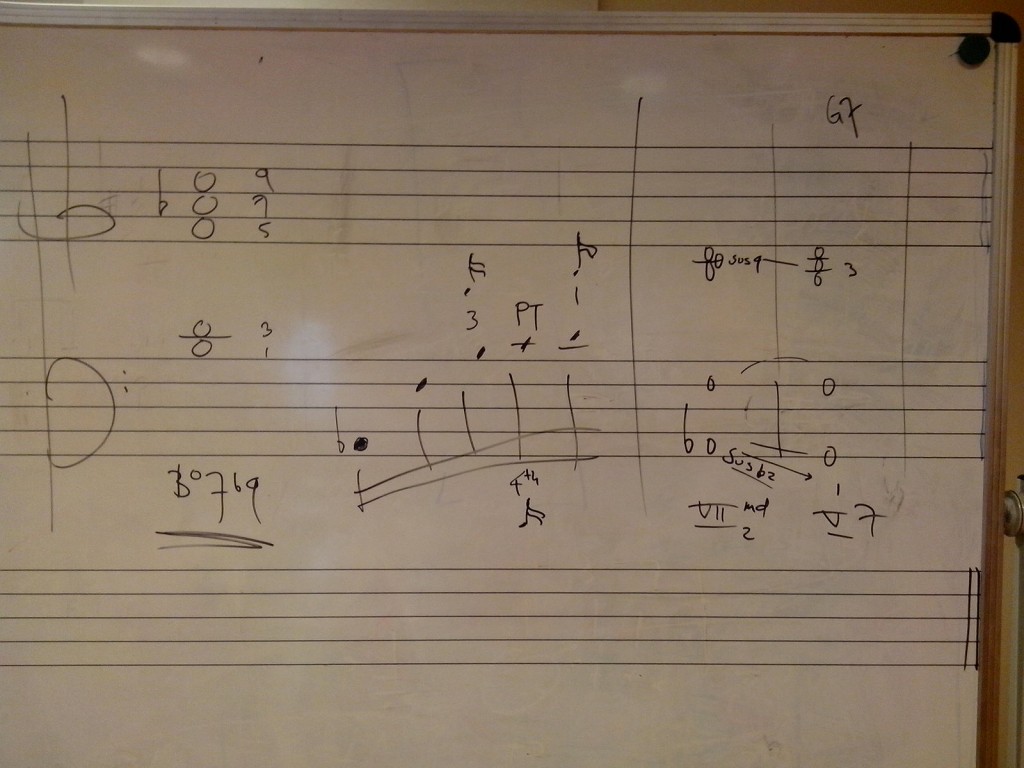 G7
9
7
5
sus 4
3
3
1
3
PT
1
B°7b9
sus b2
4th
VII md
2
1
V 7